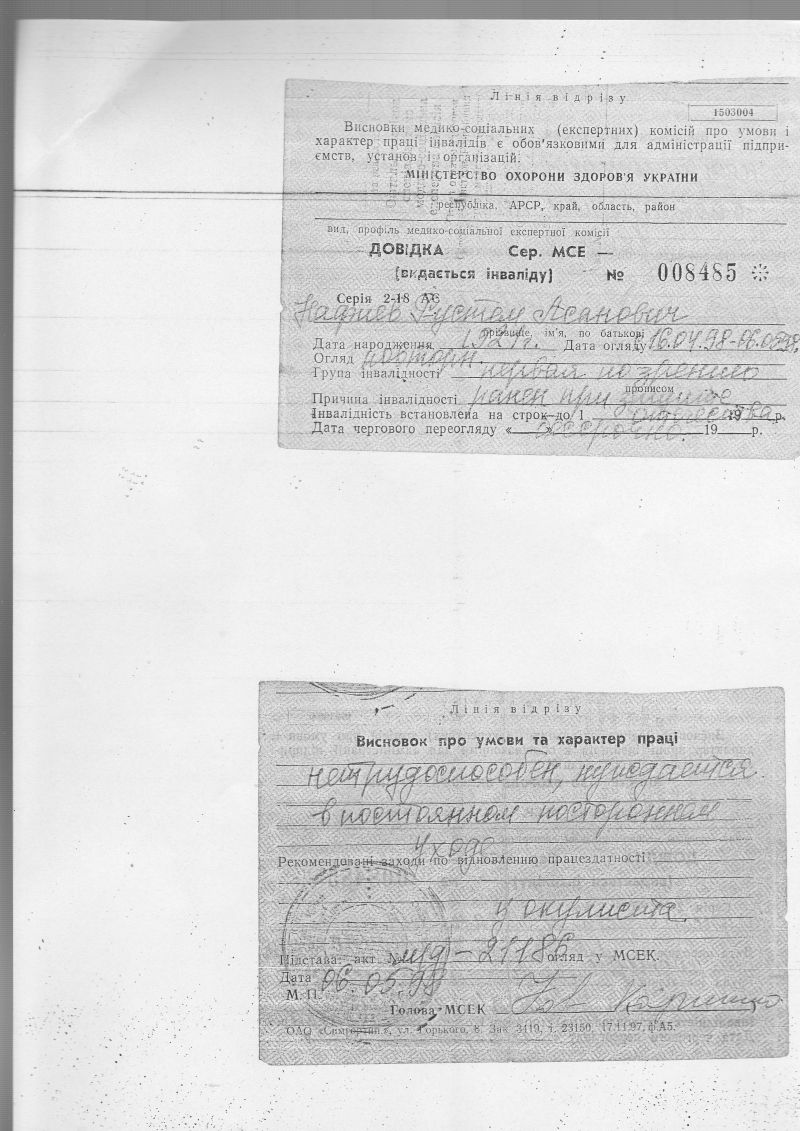 Лінія відрізу
1503004
Висновки медико-соціальних (експертних) комісій про умови і
характер праці інвалідів є обов'язковими для адміністрації підпри-
ємств, установ і організацій.
МІНІСТЕРСТВО ОХОРОНИ ЗДОРОВ'Я УКРАЇНИ
республіка, АРСР, край, область, район
вид, профіль медико-соціальної експертної комісії
ДОВІДКА Сер. МСЕ —
(видається інваліду) № 008485
Серія 2-18 АС
Рустем Асанович
прізвище, ім'я, по батькові
Дата народження 1921г. Дата огляду 16.04.98-06.05.98
Огляд повторн.
Група інвалідності первая по зрению
прописом
Причина інвалідності ранен при защите
Інвалідність встановлена на строк до 1 отечества 19 р.
Дата чергового переогляду « » бессрочно 19 р.
Лінія відрізу
Висновок про умови та характер праці
нетрудоспособен, нуждается
в постоянном постороннем
уходе
Рекомендовані заходи по відновленню працездатності
у окулиста.
Підстава: акт № огляд у МСЕК.
Дата 06.05.98
М. П.
Голова МСЕК
ОАО «Симгортип.», ул. Горького, 8. Зак. 3119, т. 23150, 17.11.97, ф.А5.